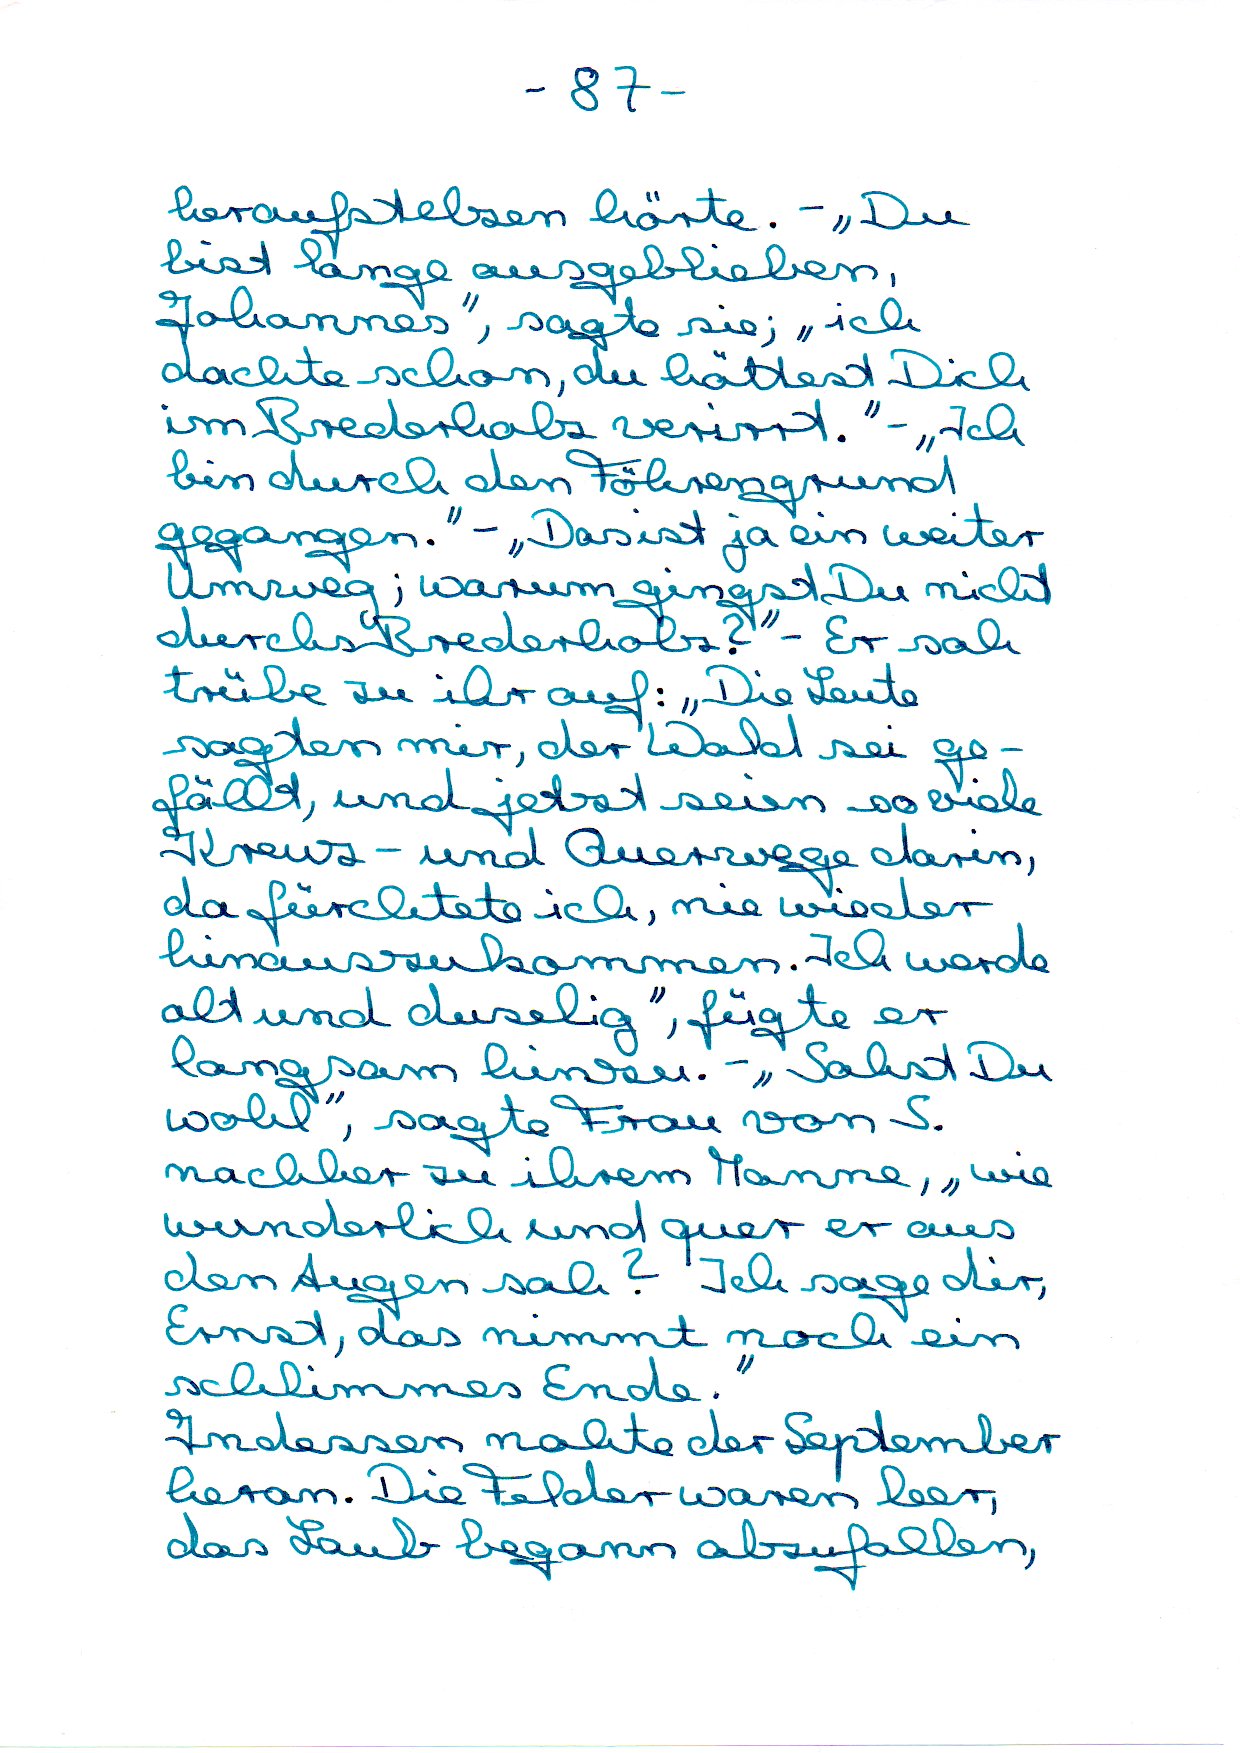 - 87 -
heraufstelzen hörte. - „Du
bist lange ausgeblieben,
Johannes", sagte sie; „ich
dachte schon, du hättest Dich
im Brederholz verirrt." - „Ich
bin durch den Föhrengrund
gegangen." - „Das ist ja ein weiter
Umweg; warum gingst Du nicht
durchs Brederholz?" - Er sah
trübe zu ihr auf: „Die Leute
sagten mir, der Wald sei ge-
fällt, und jetzt seien so viele
Kreuz- und Querwege darin,
da fürchtete ich, nie wieder
hinauszukommen. Ich werde
alt und duselig", fügte er
langsam hinzu. - „Sahst Du
wohl", sagte Frau von S.
nachher zu ihrem Manne, „wie
wunderlich und quer er aus
den Augen sah? Ich sage dir,
Ernst, das nimmt noch ein
schlimmes Ende."
Indessen nahte der September
heran. Die Felder waren leer,
das Laub begann abzufallen,